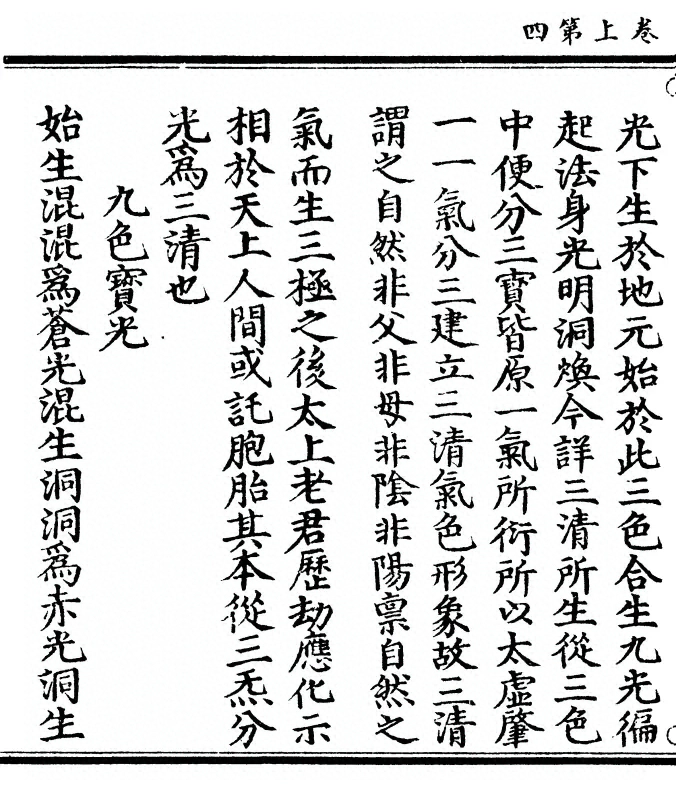 四第上卷
光下生於地元始於此三色合生九光徧
起法身光明洞煥今詳三清所生從三色
中便分三寶皆原一氣所衍所以太虛肇
一一氣分三建立三清氣色形象故三清
謂之自然非父非母非陰非陽稟自然之
氣而生三極之後太上老君歷劫應化示
相於天上人間或託胞胎其本從三炁分
光爲三清也
九色寶光
始生混混爲蒼光混生洞洞爲赤光洞生